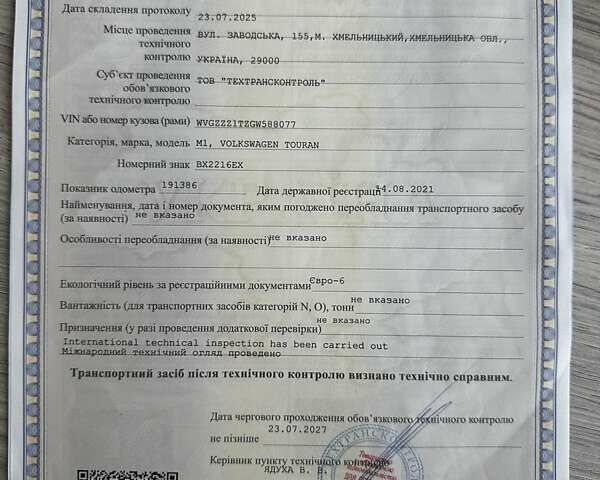 Дата складення протоколу 23.07.2025
Місце проведення ВУЛ. ЗАВОДСЬКА, 155,М. ХМЕЛЬНИЦЬКИЙ,ХМЕЛЬНИЦЬКА ОБЛ.,
технічного
контролю УКРАЇНА, 29000
Суб’єкт проведення ТОВ "ТЕХТРАНСКОНТРОЛЬ"
обов’язкового
технічного контролю
VIN або номер кузова (рами) WVGZZZ1TZGW588077
Категорія, марка, модель M1, VOLKSWAGEN TOURAN
Номерний знак BX2216EX
Показник одометра 191386 Дата державної реєстрації 14.08.2021
Найменування, дата і номер документа, яким погоджено переобладнання транспортного засобу
(за наявності) не вказано
Особливості переобладнання (за наявності) не вказано
Екологічний рівень за реєстраційними документами Євро-6
Вантажність (для транспортних засобів категорій N, O), тонн не вказано
Призначення (у разі проведення додаткової перевірки) не вказано
International technical inspection has been carried out
Міжнародний технічний огляд проведено
Транспортний засіб після технічного контролю визнано технічно справним.
Дата чергового проходження обов’язкового технічного контролю
23.07.2027
не пізніше
Керівник пункту технічного контролю
ЯДУХА В. В.